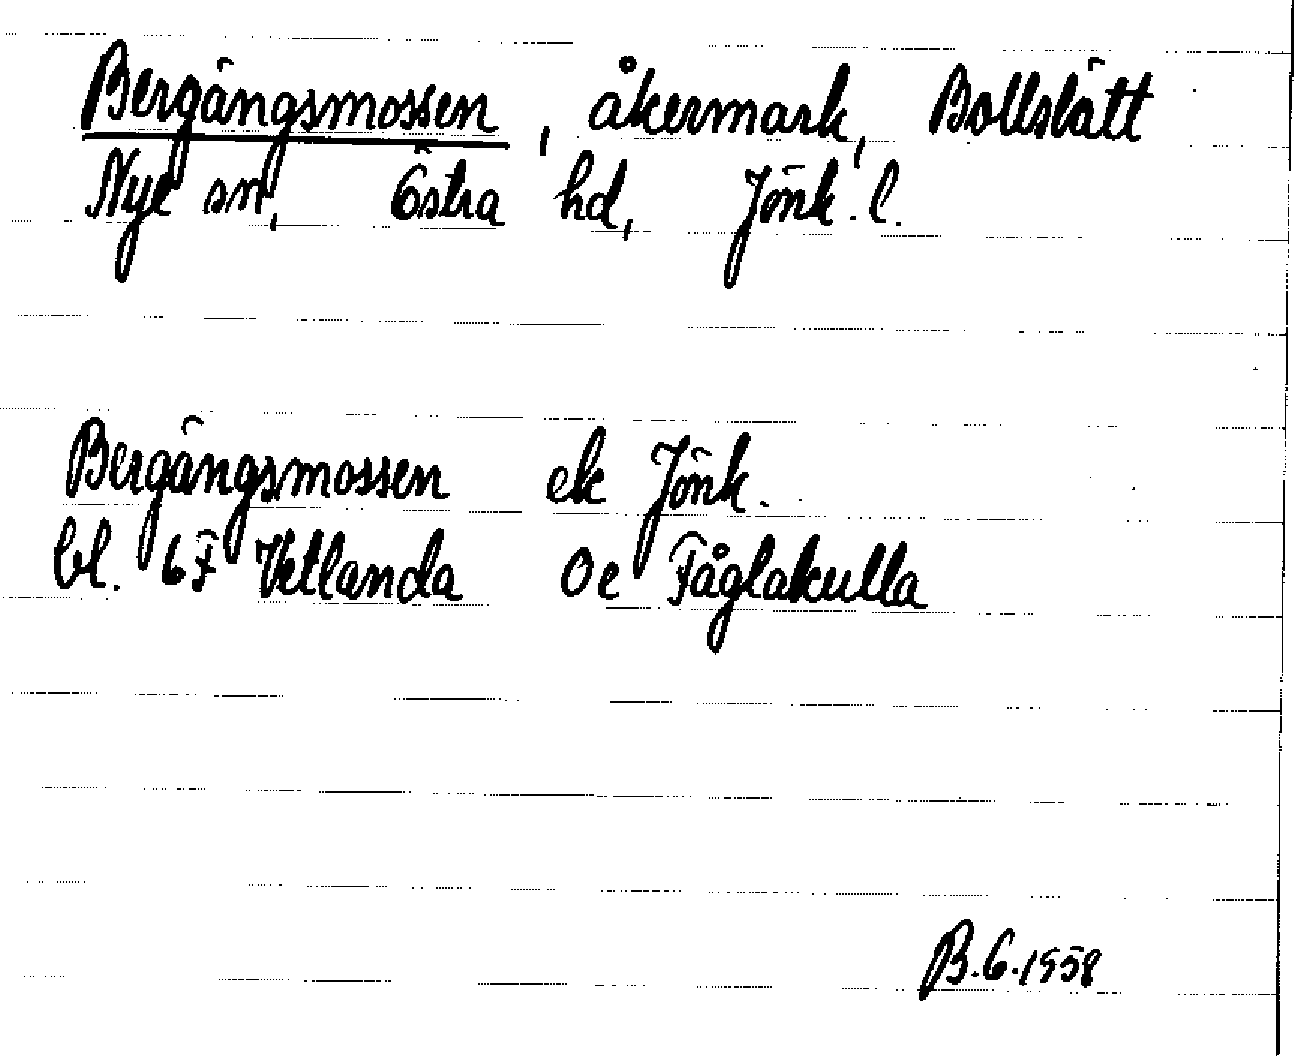 Bergängsmossen, åkermark, Bollslätt
Nye sn, Östra hd, Jönk. l.
Bergängsmossen ek Jönk.
bl. 6F Vetlanda 0e Fåglakulla
B.G.1958